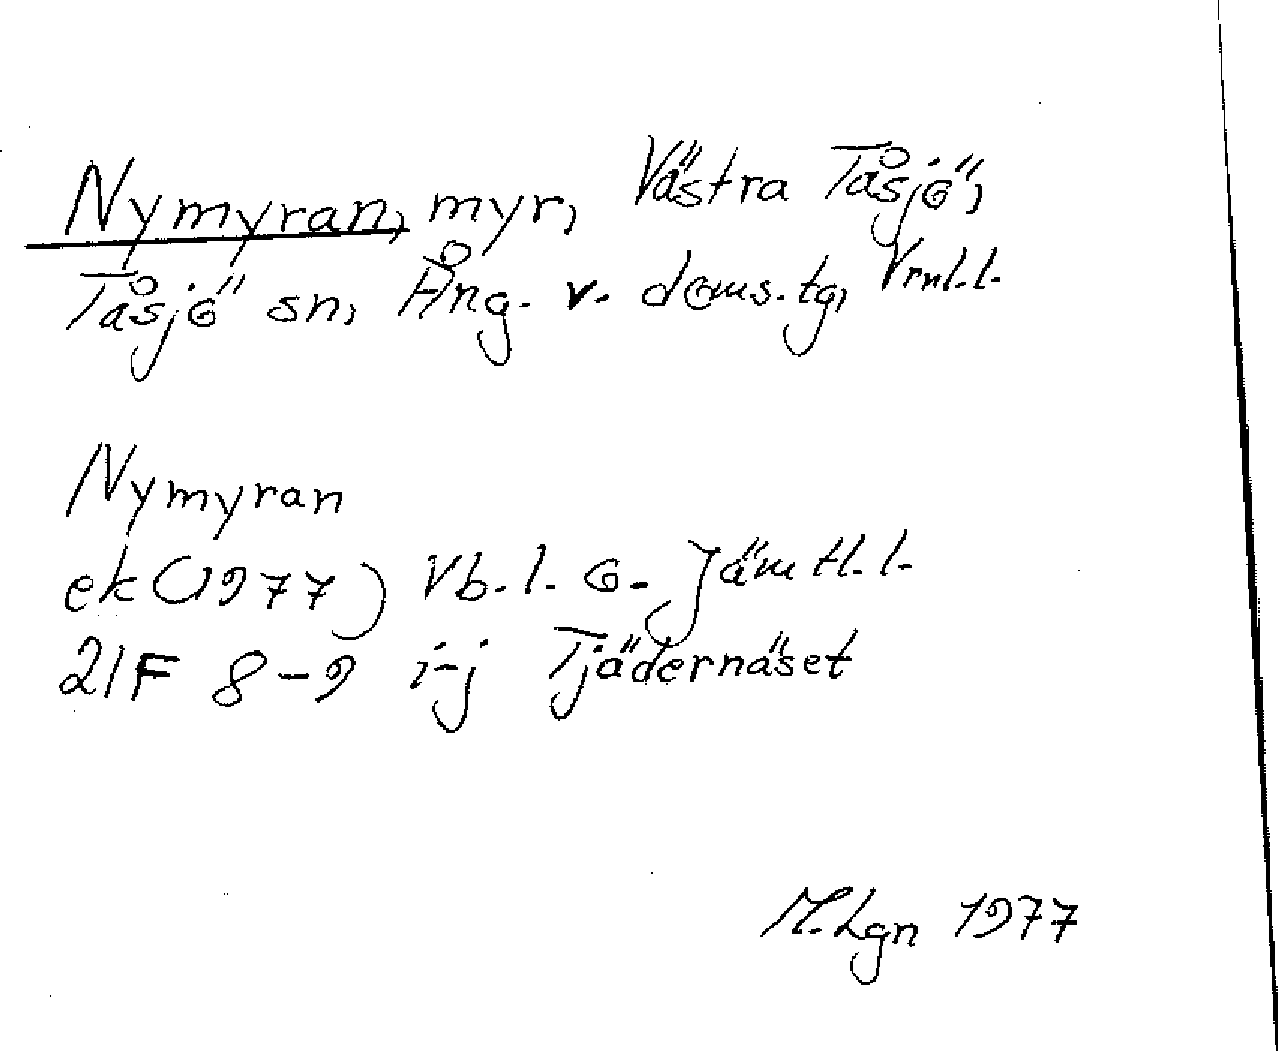 Nymyran, myr, Västra Tåsjö,
Tåsjö sn, Ång. v. doms.tg, Vrnl.l.
Nymyran
ek (1977) Vb. l. o. Jämtl. l.
21F 8-9 i-j Tjädernäset
M.Lgn 1977